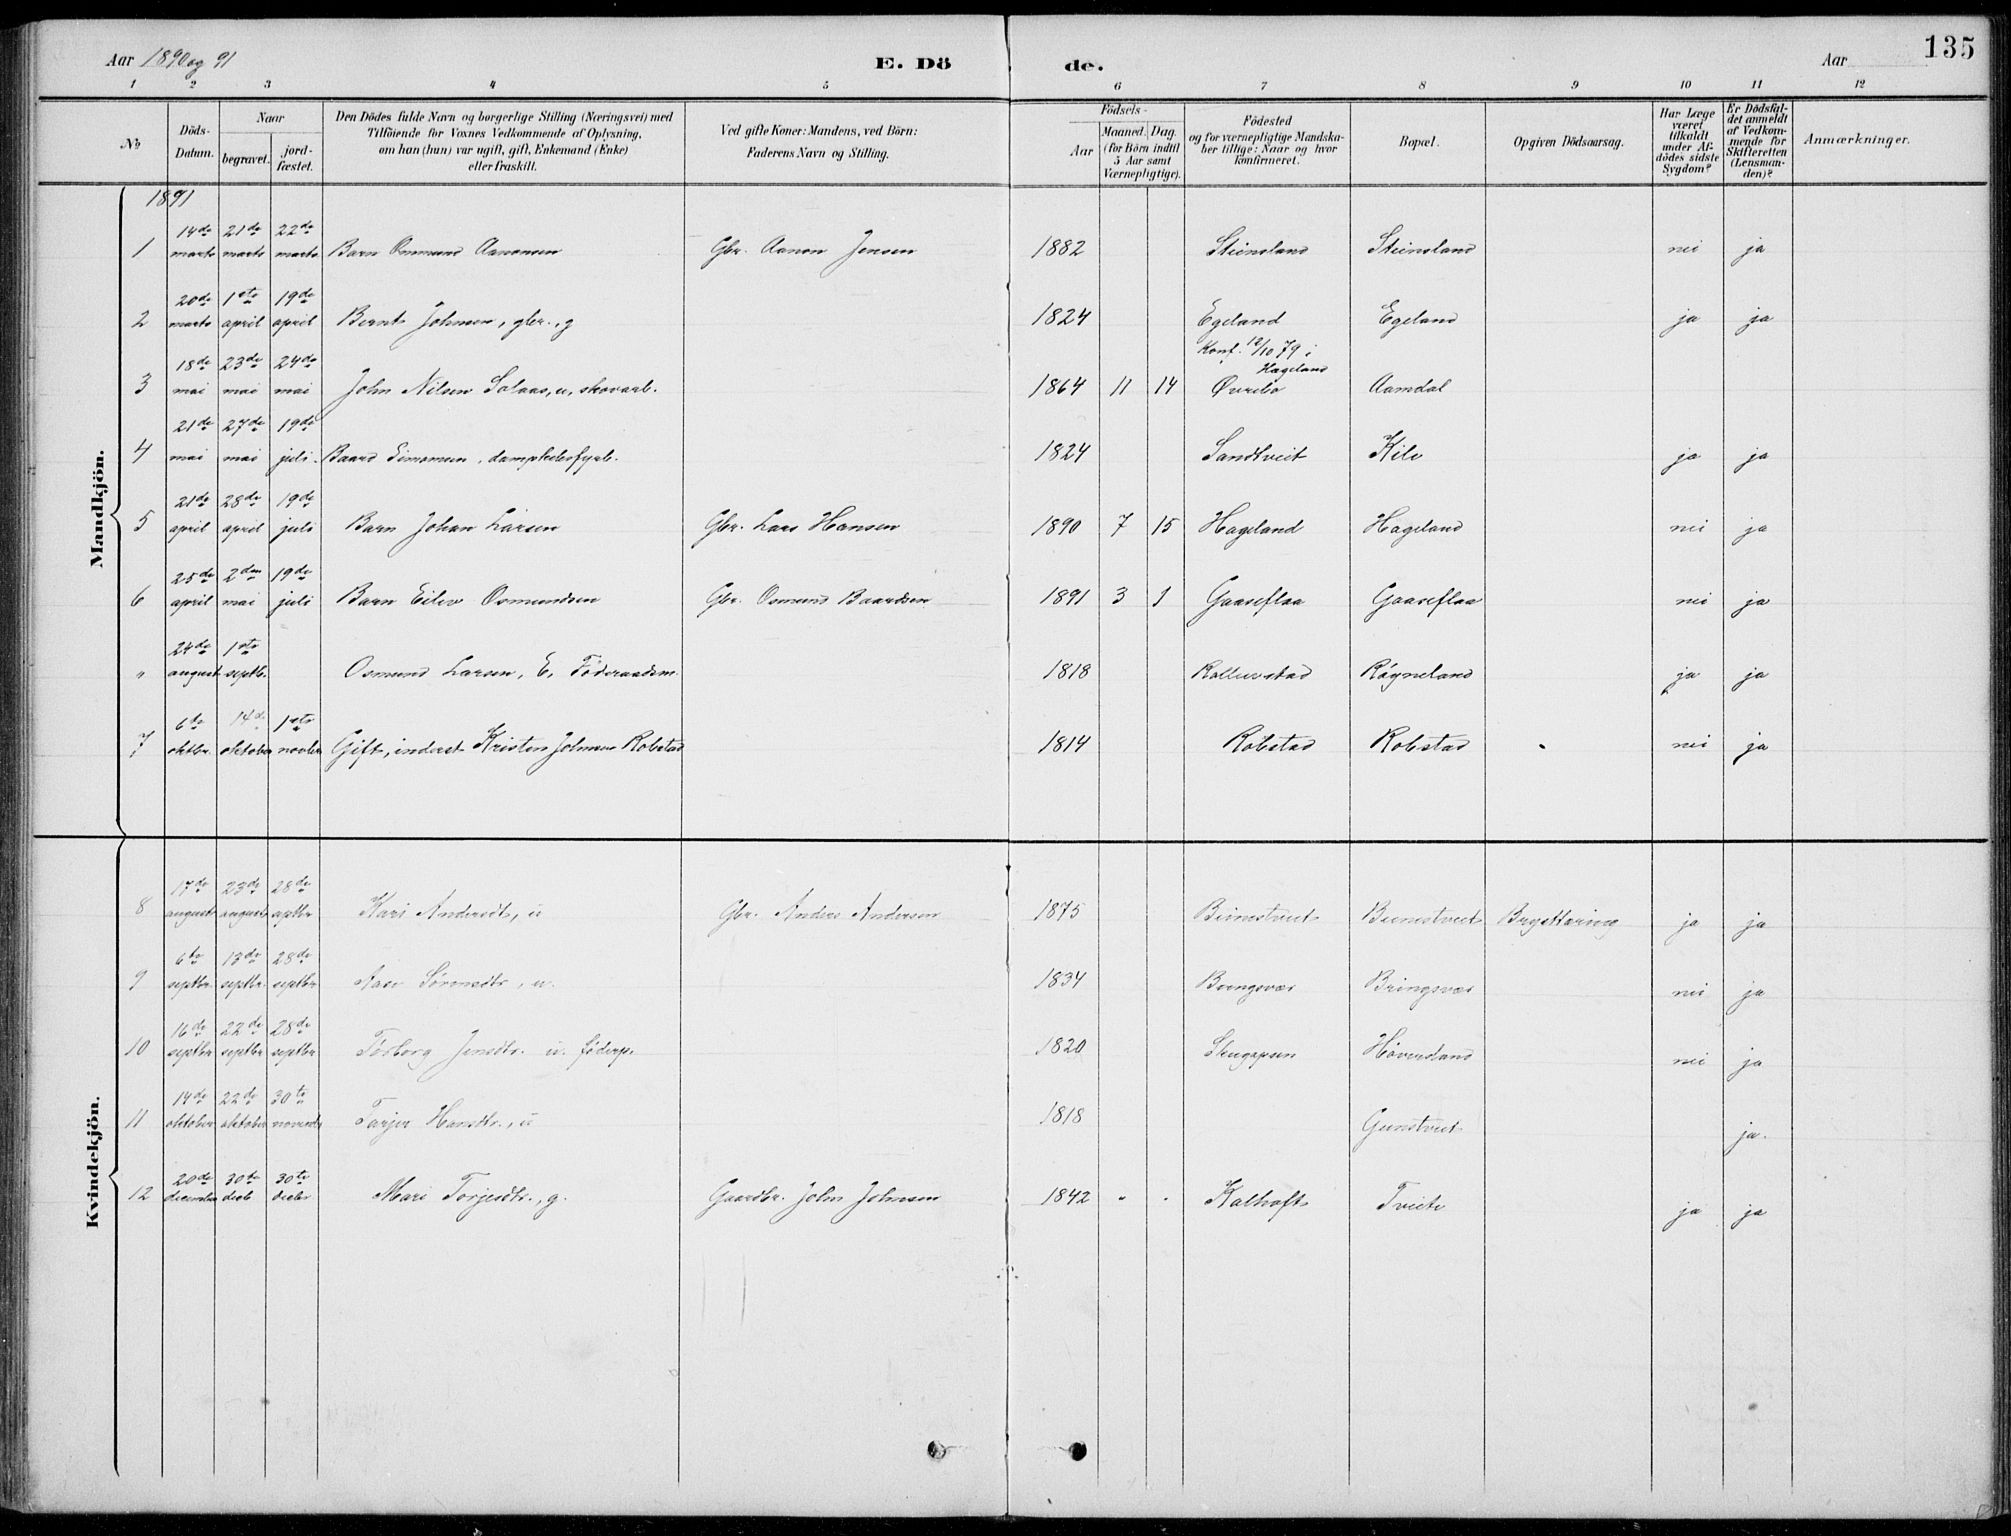 Aar 1890 og 91
E. Dö
de.
Aar
135
1 2 3 4 5 6 7 8 9 10 11 12
No
Döds-Datum.
Naar
begravet.
jord-fæstet.
Den Dödes fulde Navn og borgerlige Stilling (Næringsvei) med
Tilföiende for Voxnes Vedkommende af Oplysning,
om han (hun) var ugift, gift, Enkemand (Enke)
eller fraskilt.
Ved gifte Koner: Mandens, ved Börn:
Faderens Navn og Stilling.
Födsels-
Aar
Maaned. Dag.
(for Börn indtil
5 Aar samt
Værnepligtige).
Födested
og for værnepligtige Mandska-
ber tillige: Naar og hvor
konfirmeret.
Bopæl.
Opgiven Dödsaarsag.
Har Læge
været
tilkaldt
under Af-
dödes sidste
Sygdom?
Er Dödsfal-
det anmeldt
af Vedkom-
mende for
Skifteretten
(Lensman-
den)?
Anmærkninger.
Mandkjön.
1891
14de 21de 22de
1 marts marts marts Barn Osmund Aanonsen Gbr. Aanon Jensen 1882 Steinsland Steinsland nei ja
20de 1ste 19de
2 marts april april Bernt Johnsen, gbr., g 1824 Egeland Egeland ja ja
18de 23de 24de Konf. 12/10 79 i
Hægeland
3 mai mai mai John Nilsen Solaas, u, skovarb. 1864 11 14 Øvrebø Aamdal
21de 27de 19de
4 mai mai juli Baard Simonsen, 1824 Sandtveit Kile ja ja
21de 28de 19de
5 april april juli Barn Johan Larsen Gbr. Lars Hansen 1890 7 15 Hageland Hageland nei ja
25de 2den 19de
6 april mai juli Barn Eilev Osmundsen Gbr. Osmund Baardsen 1891 3 1 Gaaseflaa Gaaseflaa nei ja
24de 1ste
" august septbr. Osmund Larsen, E, Föderaadsm. 1818 Kallevstad Røyneland ja ja
6te 14de 1ste
7 oktbr. oktober novbr Gift, inderst Kristen Johnsen Robstad 1814 Robstad Robstad nei ja
Kvindekjön.
17de 23de 28de
8 august august sptbr Kari Andersdt, u Gbr. Anders Andersen 1875 Bunestveit Bunestveit Brysttæring ja ja
6te 13de 28de
9 septbr. septbr. septbr Aase Sörensdtr, u. 1834 Bringsvær Bringsvær nei ja
16de 22de 28de
10 septbr septbr septbr. Torborg Jensdtr. u. föderp. 1820 Høversland nei ja
14de 22de 30te
11 oktober oktober novembr Tarjer Hansdtr., u 1818 Gunstveit ja.
20de 30te 30te
12 december decb decbr Mari Torjesdtr., g. Gaardbr. John Johnsen 1842 " " Kalhoft Tveite ja ja